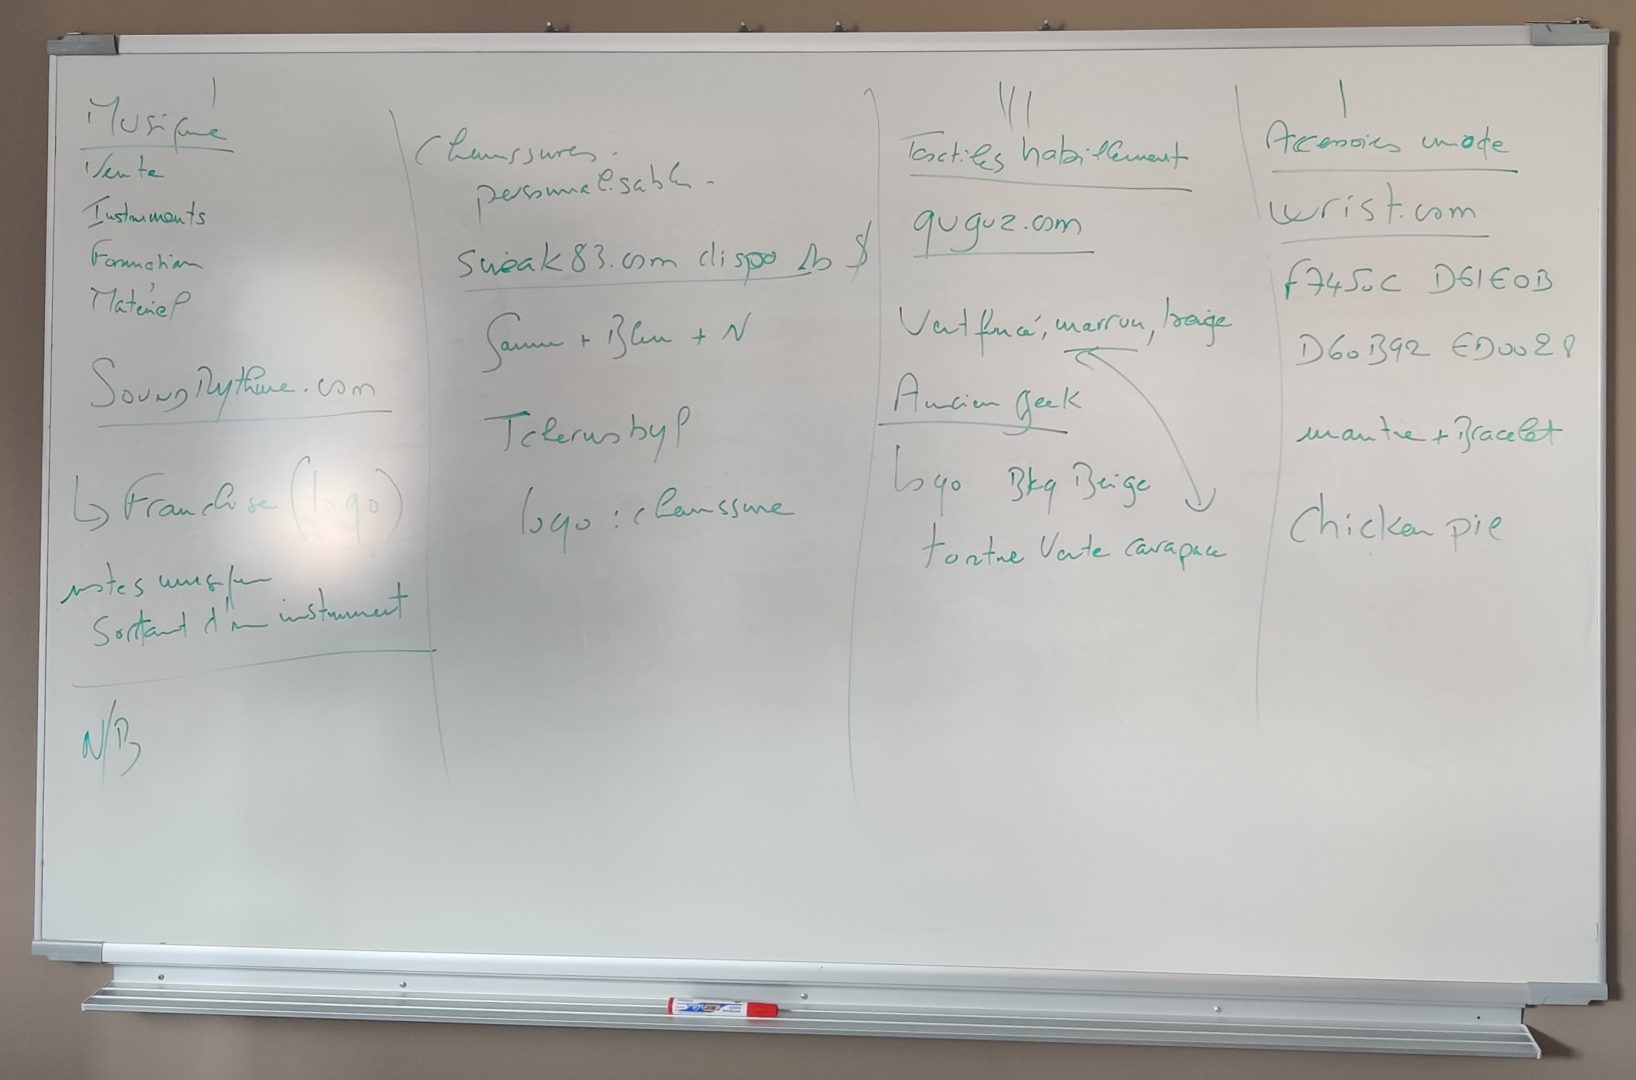 Musique
Vente
Instruments
Formation
Matériel
SoundRythme.com
↳ Franchise (logo)
notes musique
Sortant d'un instrument
N/B
Chaussures
personnalisable
sneak83.com dispo $
Jaune + Bleu + N
logo : chaussure
Textiles habillement
quguz.com
Vert foncé, marron, beige
Ancien geek
logo Bkg Beige
tortue Verte carapace
Accessoires mode
wrist.com
D61E0B
D60B92
montre + Bracelet
Chicken pie